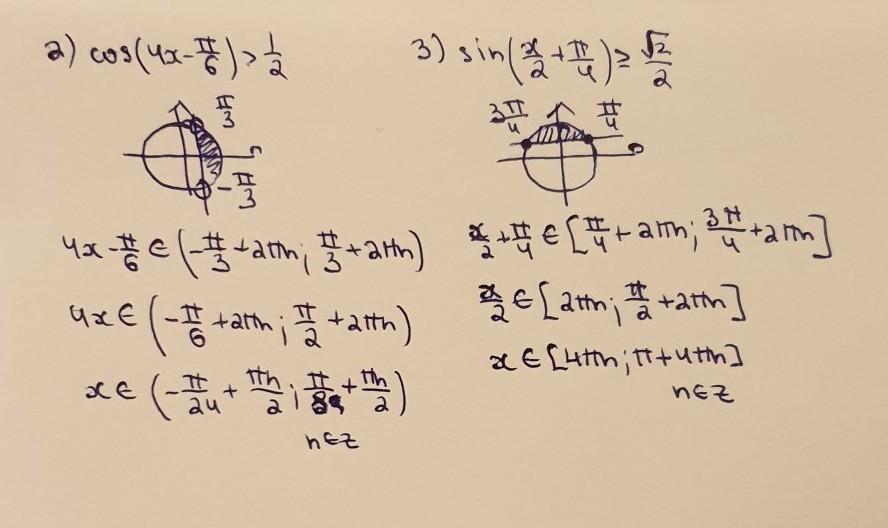 2) cos(4x-π/6)>1/2
π/3
-π/3
4x-π/6 ∈ (-π/3+2πn; π/3+2πn)
4x ∈ (-π/6+2πn; π/2+2πn)
x ∈ (-π/24+πn/2; π/8+πn/2)
n∈Z
3) sin(x/2+π/4)≥√2/2
3π/4 π/4
x/2+π/4 ∈ [π/4+2πn; 3π/4+2πn]
x/2 ∈ [2πn; π/2+2πn]
x ∈ [4πn; π+4πn]
n∈Z